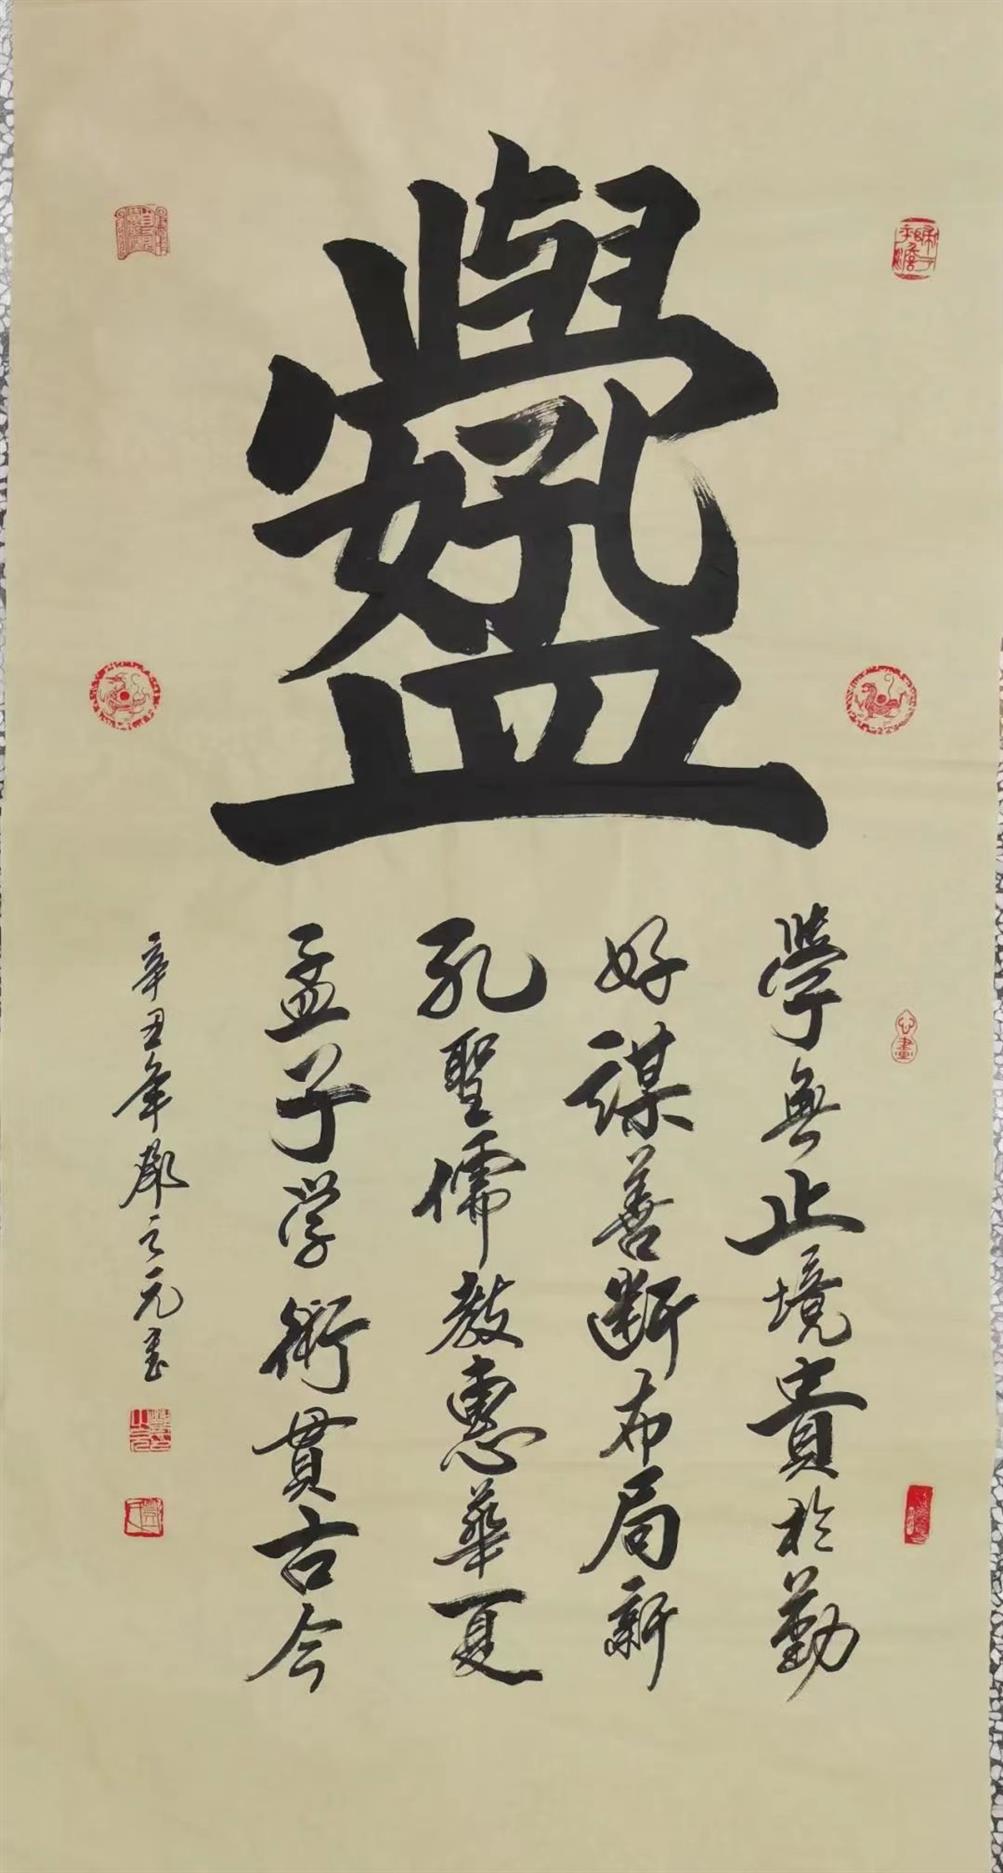 學好孔孟
學無止境貴於勤
好謀善断布局新
孔聖儒教惠華夏
孟子学術貫古今
辛丑年之元書